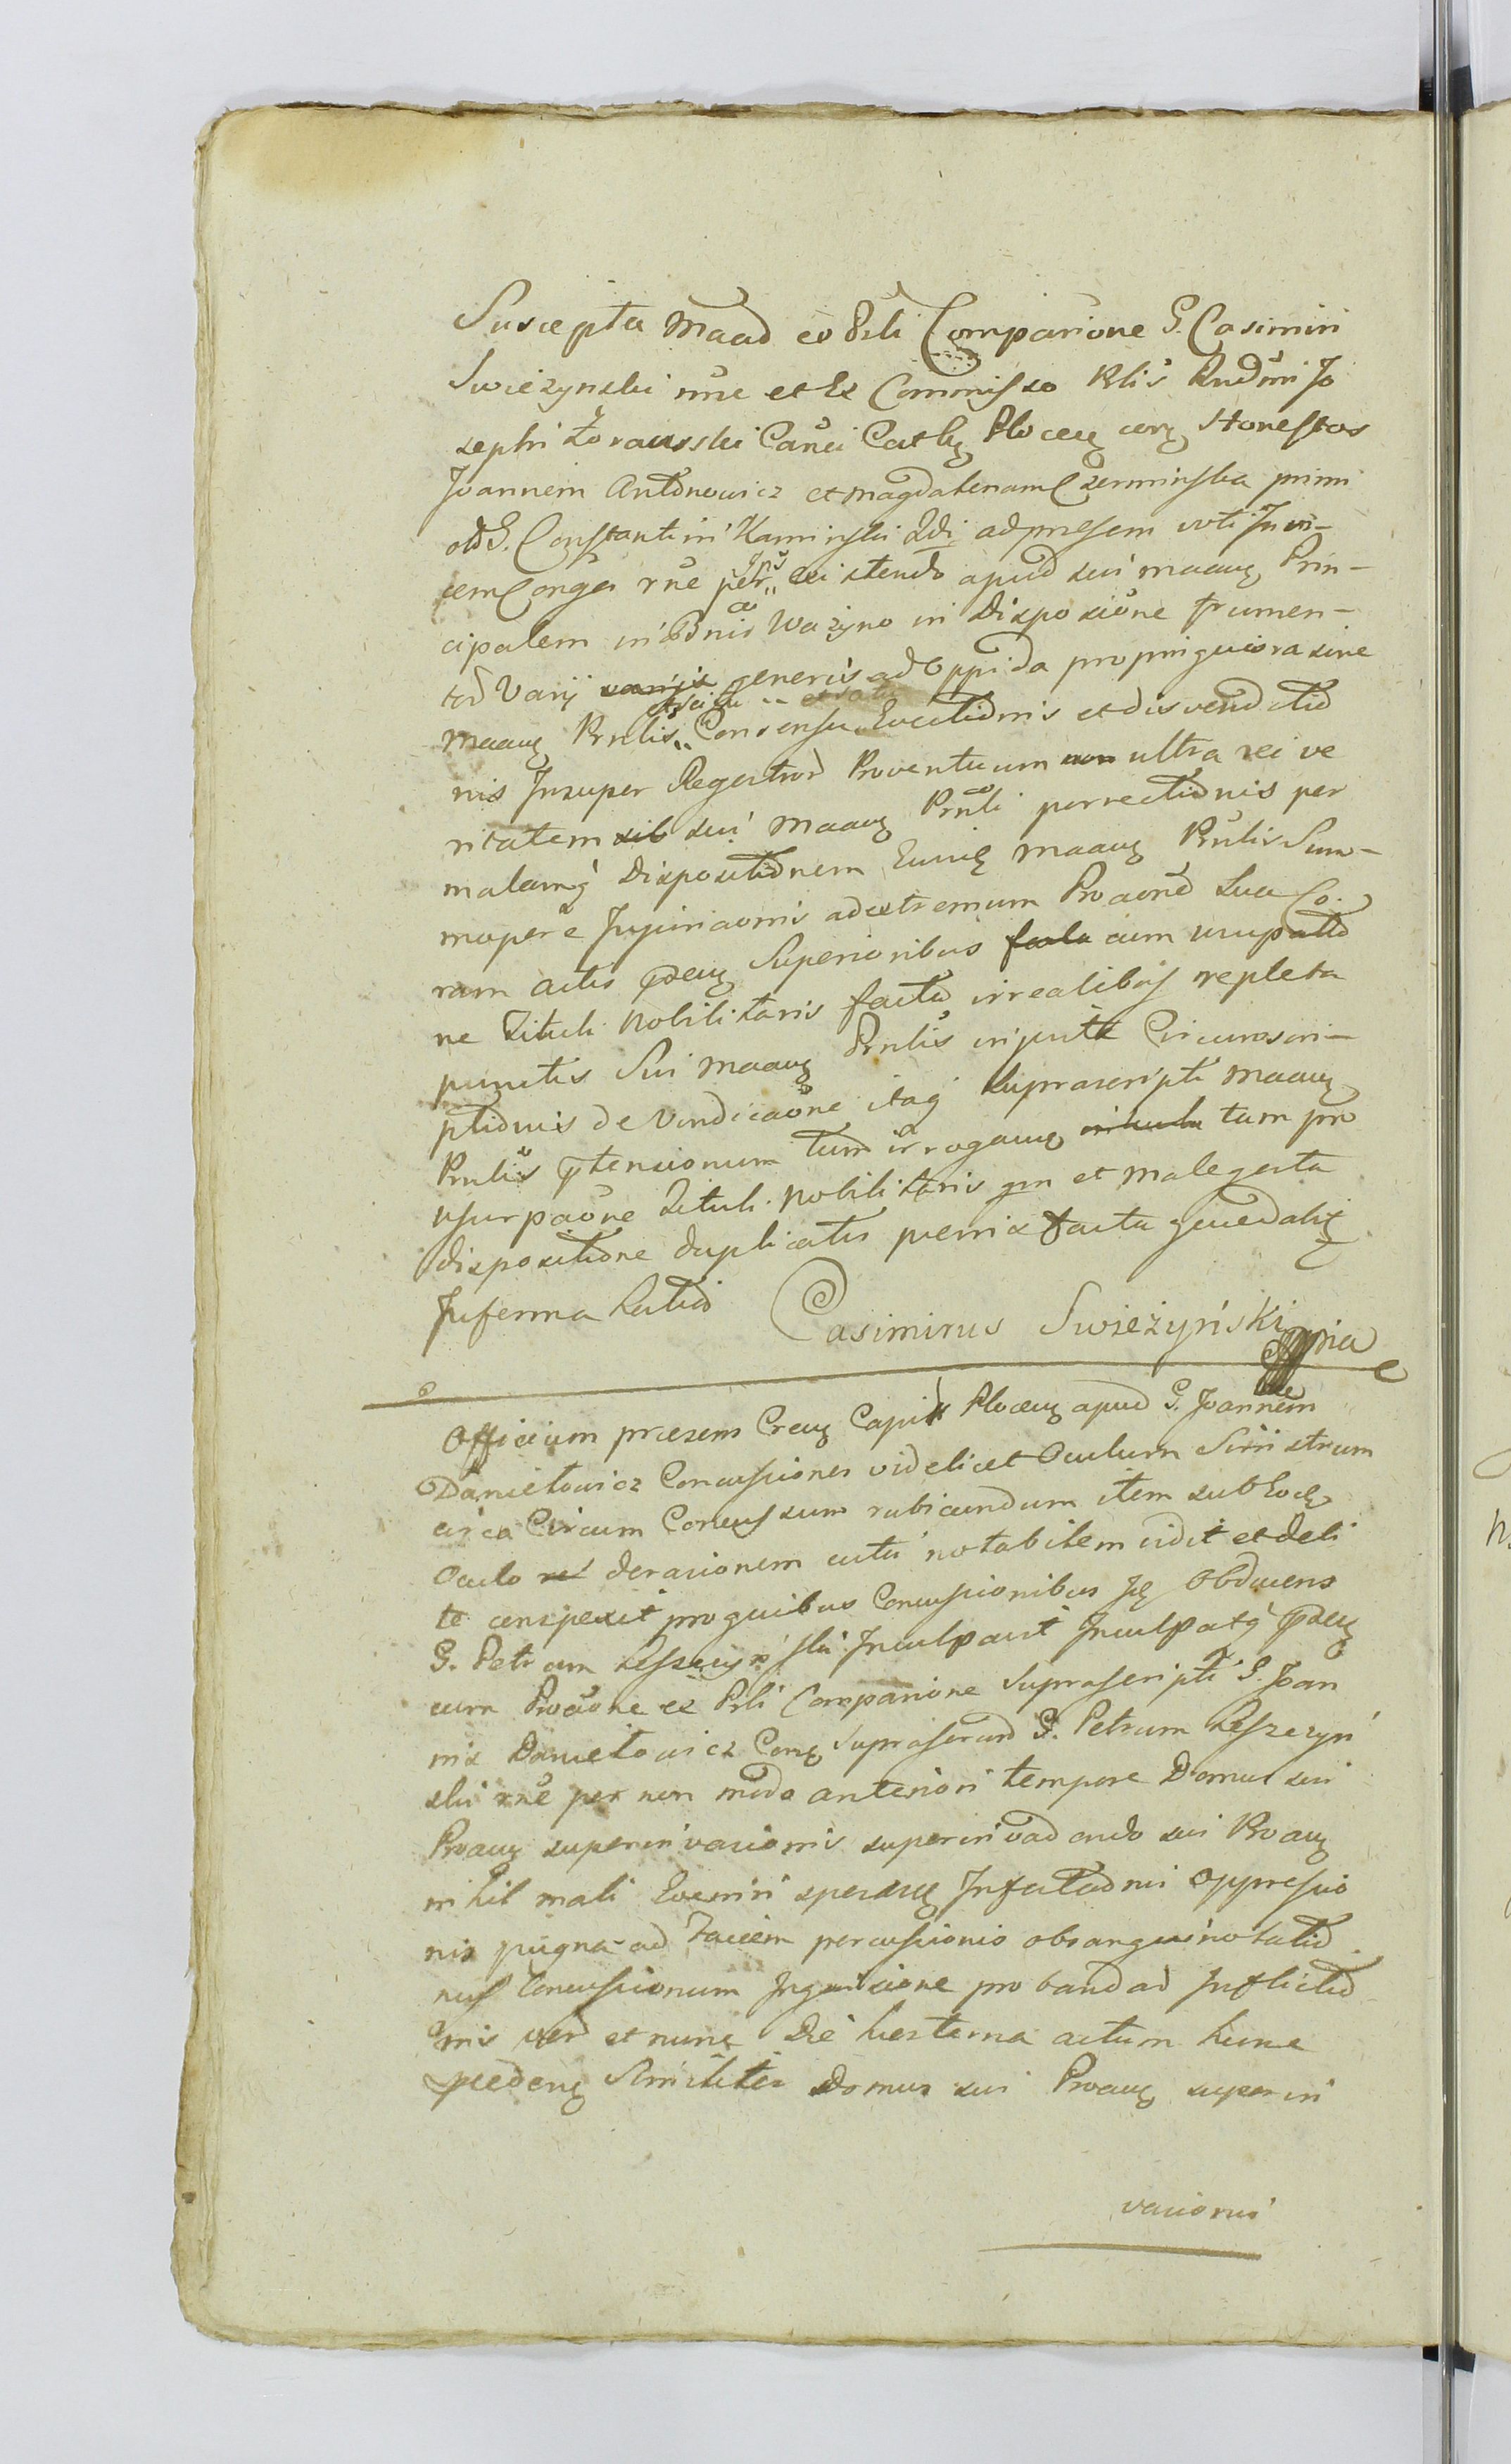 Suscepta Maad ex Prli Comparione G. Casimiri
Swiezynski nne et Ex Commisso Rlis Rndmi Jo
sephi Zorawski Canci Cathq Plocen corq Honestos
Joannem Antonowicz et Magdalenam Czerminska primi
olo G. Constantini Kaminski 2di ad presens voti Invi-
cem Conges rne per ipsos existendo apud sui maanq Prin-
cipalem in Bnis Wazyno in Dispositione frumen-
tor Varij generis ad Oppida propinquiora sine
maanq Prnlis Consensu Evectionis et disvenditio
nis Insuper Regestror Proventuum ultra rei ve
ritatem sui maanq Prnli porrectionis per
malamq Dispositionem Eiusq maanq Prnlis Sum-
mopere Injuriaonis ad extremum Proaone sua Co-
ram actis pden Superioribus cum usurpatio
ne Tituli Nobilitaris facta irrealibus repleta
punctis Sui maanq Prnlis injusta Circumscri-
ptionis de Vindicaone itaq suprascripti maanq
Prnlis ptensionum tum irroganq tum pro
usurpaone Tituli Nobilitaris qm et malegesta
dispositione duplicatis penis facta
Inferma latio Casimirus Swieżyński mpria
Officium praesens Crenq Capit Plocenq apud G. Joannem
Danielowicz Concussiones videlicet Oculum Sinistrum
circa Circum Concussum rubicundum item sub Eodq
Oculo derasionem cutis notabilem vidit et deli
te conspexit pro quibus Concussionibus Iq Obducens
G. Petrum Leszczynski Inculpavit Inculpatq pden
cum Proaone ex Prli Comparione Suprascripti G. Joan
nis Danielowicz Conq Suprascrip G. Petrum Leszczyn
ski rne per non modo anteriori tempore Domus sui
Proanq superinvasionis superinvadendo sui Proanq
nihil mali Eveniri speranq Infestationi oppressio
nis pugna ad Faciem percussionis obsanguinotatio
nis Concussionum Inquisitione probandar Inflictio
nis verd et nunc Die hesterna actum hunc
pcedenq Similiter Domus sui Proanq superin
vasionis